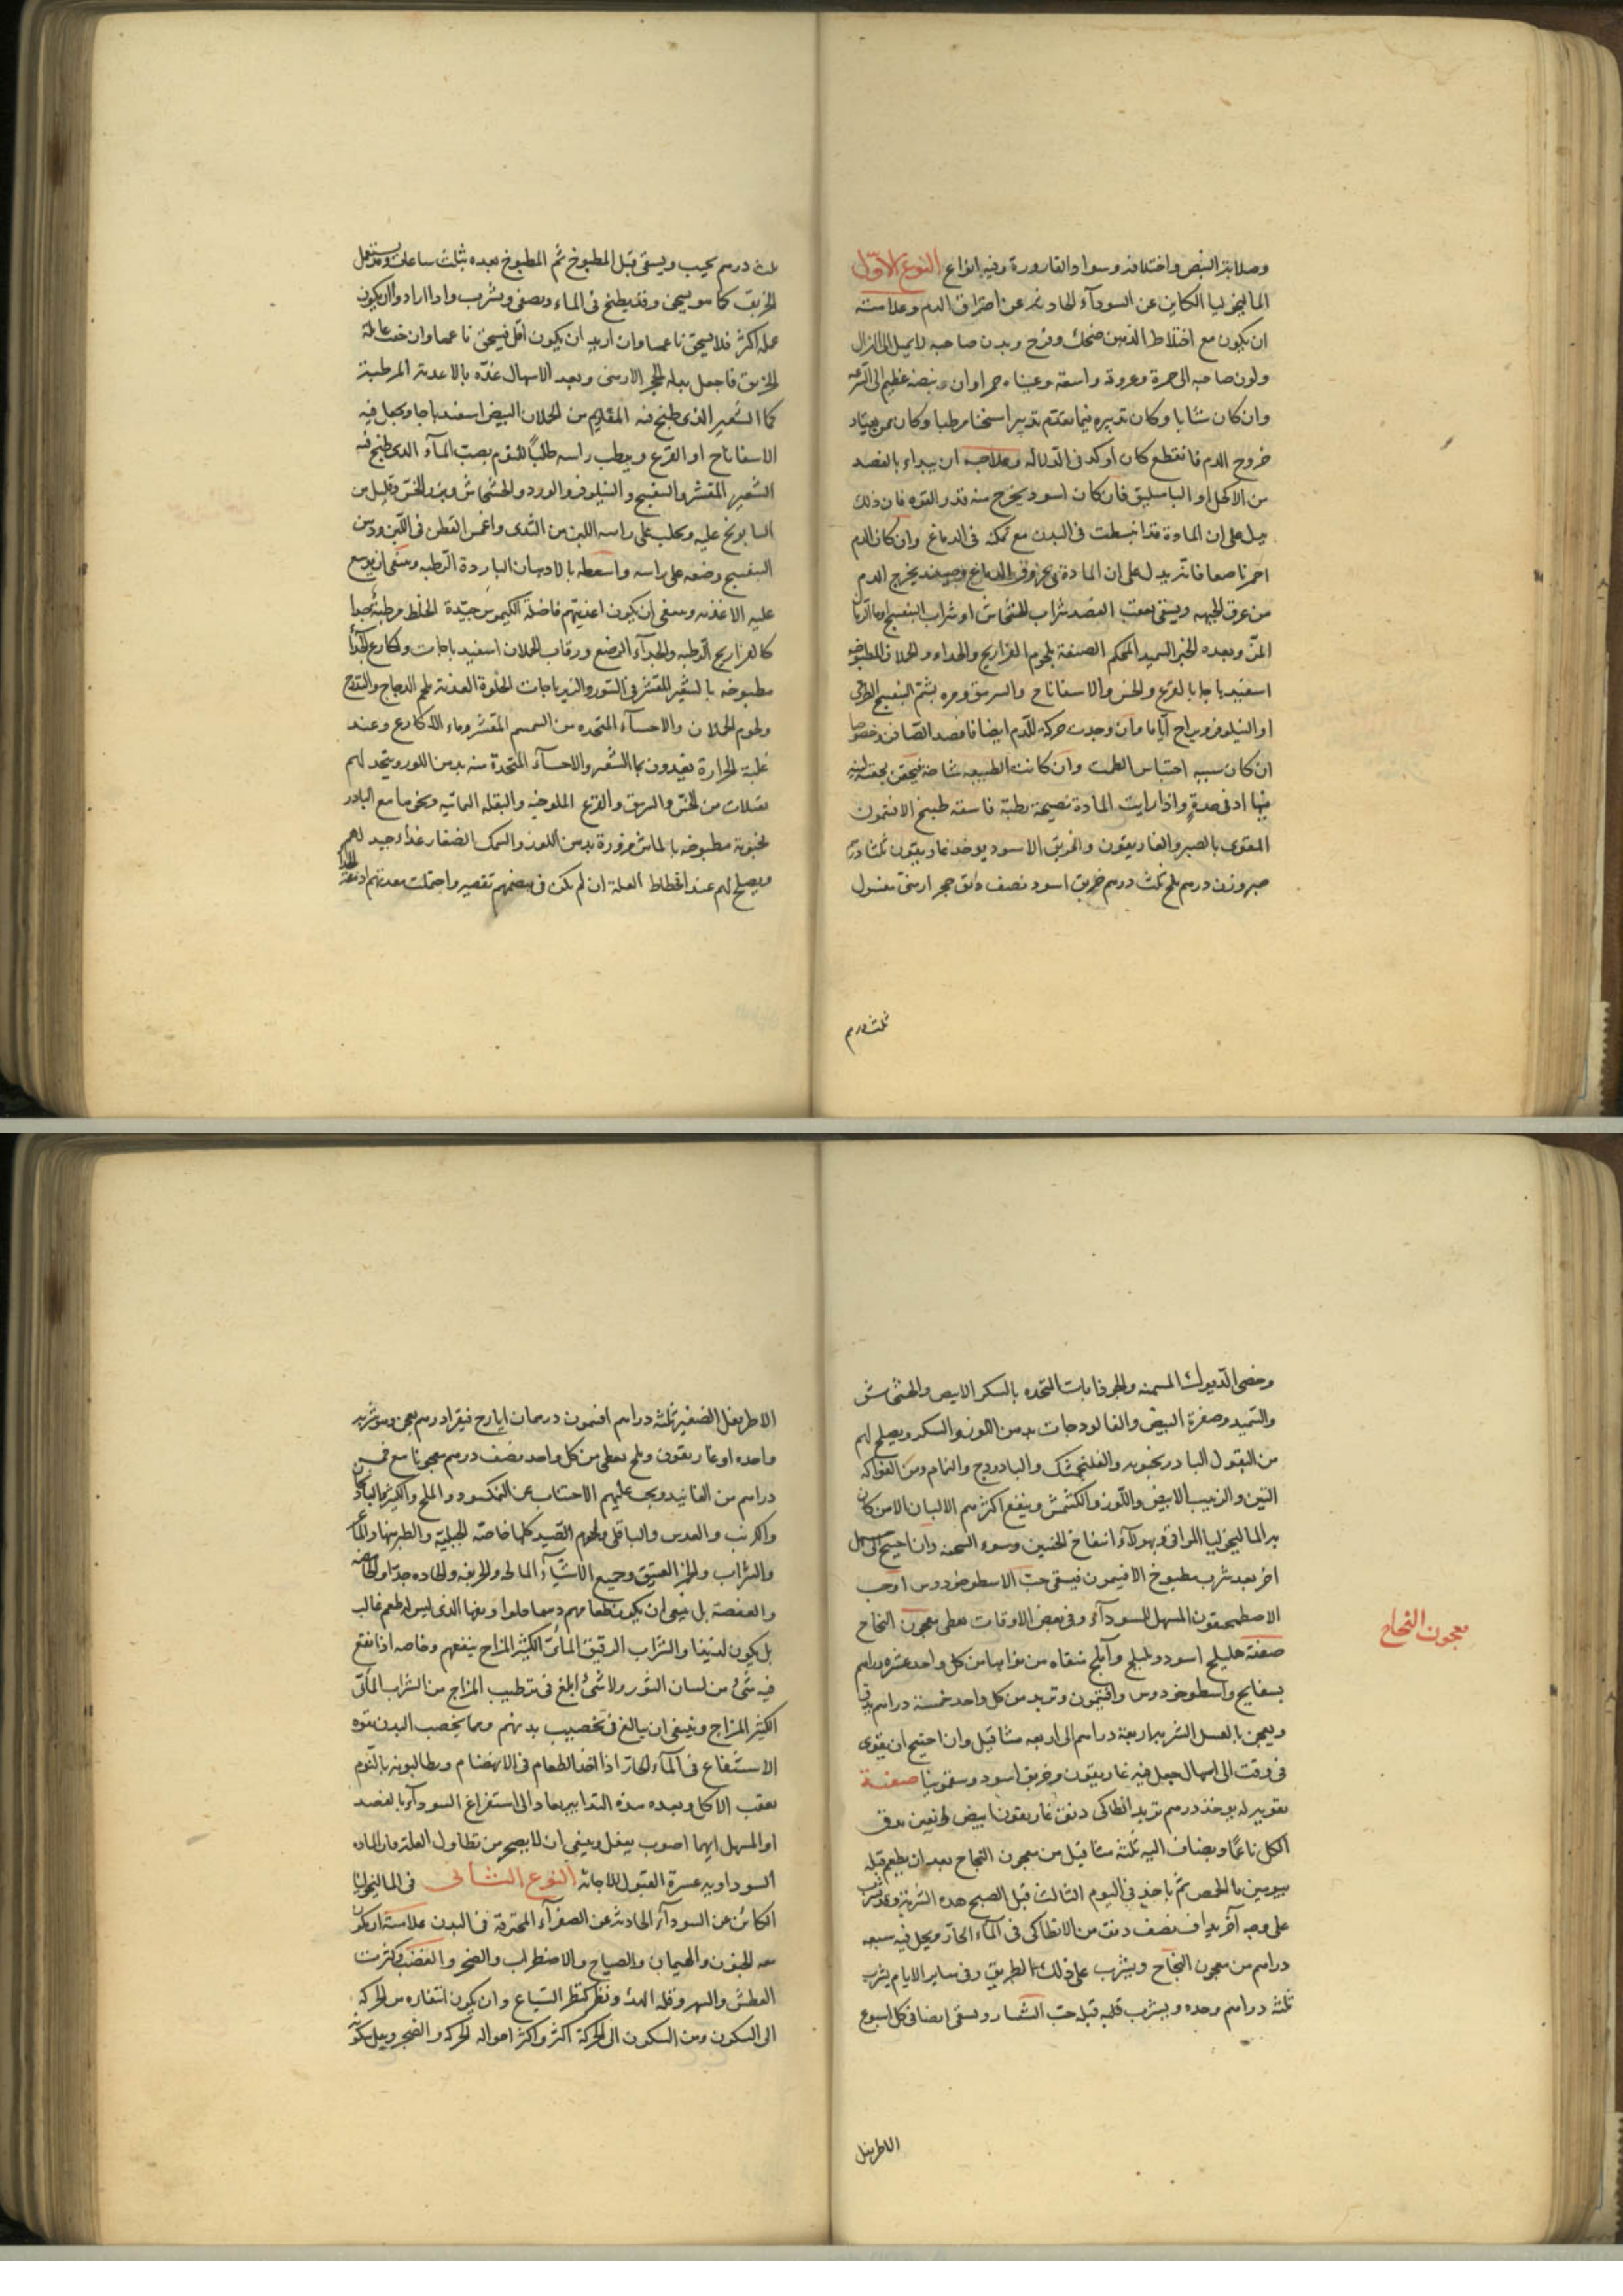 وصلابة النبض واختلافه وسواد القارورة وفيه انواع النوع الاوّل
الماليخوليا الكاين عن السودآء الحادثه عن احتراق الدم وعلامته
ان يكون مع اختلاط الذهن ضحك وفرح وبدن صاحبه لا يميل الى الهزال
ولون صاحبه الى حمرة وعروقه واسعة وعيناه حمراوان ونبضه عظيم الى السرعه
وان كان شابا وكان تدبيره فيما تقدم تدبيرا مسخنا مرطبا وكان ممن يعتاد
خروج الدم فانقطع كان اوكد فى الدلاله وعلاجه ان يبداء بالفصد
من الاكحل او الباسليق فان كان اسود يخرج منه قدر القوه فان ذلك
يدل على ان المادة قد انبسطت فى البدن مع تمكنه فى الدماغ وان كان الدم
احمر ناصعا فانه يدل على ان المادة فى عروق الدماغ وحينئذ يخرج الدم
من عرق الجبهه ويسقى بعقب الفصد شراب الخشخاش او شراب البنفسج او ماء الرمان
المزّ وبعده الخبز السميد المحكم الصنعة بلحوم الفراريج والجداء والحملان المطبوخه
اسفيدباجا بالقرع والخس والاسفاناخ والسرمق ومره بشم البنفسج الطرى
او النيلوفر ويراح اياما وان وجدت حركة للدم ايضا فافصد الصافن وخصوصا
ان كان سببه احتباس الطمث وان كانت الطبيعه شاحه فيحقن بحقنة لينه
فيها ادنى حدةٍ واذا رايت المادة نضيجة رطبة فاسقه طبيخ الافتيمون
المقوى بالصبر والغاريقون والخربق الاسود يوخذ غاريقون ثلثا درهم
صبر وزن درهم ملح ثلث درهم خربق اسود نصف دانق حجر ارمنى مغسول
ثلث درهم
ثلث درهم يحبب ويسقى قبل المطبوخ ثم المطبوخ بعده بثلث ساعات وقد يستعمل
الخربق كما هو يسحق وقد يطبخ فى الماء ويصفى ويشرب واذا ارادوا ان يكون
عمله اكثر فلا يسحق ناعما وان اريد ان يكون اقل فيسحق ناعما وان خفت غائلة
الخربق فاجعل بدله الحجر الارمنى وبعد الاسهال غذّه بالاغذية المرطبة
كماء الشعير الذى طبخ فيه المقاديم من الحملان البيض اسفيدباجا ويجعل فيه
الاسفاناخ او القرع ويرطب راسه طلباً للنوم بصب المآء الذى طبخ فيه
الشعير المقشر والبنفسج والنيلوفر والورد والخشخاش وبزر الخس وقليل من
البابونج عليه ويحلب على راسه اللبن من الثدى واغمس القطن فى اللبن ودهن
البنفسج وضعه على راسه واسعطه بالادهان الباردة الرطبه وينبغى ان يوسع
عليه الاغذيه وينبغى ان يكون اغذيتهم فاضلة الكيموس جيّدة الخلط مرطبة جدا
كالفراريج الرطبه والجدآء الرضع ورقاب الحملان اسفيدباجات واكارع الجدآ
مطبوخه بالشعير المقشر فى التنور والزيرباجات الحلوة العذبة بلحم الدجاج والتدرج
ولحوم الحملان والاحسآء المتخذه من السمسم المقشر وماء الاكارع وعند
غلبة الحرارة يغذون بماء الشعير والاحسآء المتخذة منه بدهن اللوز ويتخذ لهم
بقلات من الخس والسرمق والقرع الملوخيه والبقله اليمانيه ونحوها مع البادر
نجبوية مطبوخه بالماش مزورة بدهن اللوز والسمك الصغار غذاء جيد لهم
ويصلح لهم عند انحطاط العلة ان لم يكن فى هضمهم تقصير واحتملت معدتهم ادمغة الجدآ
وخصى الديوك المسمنه والجوذابات المتخذه بالسكر الابيض والخشخاش
والسميد وصفرة البيض والفالوذجات بدهن اللوز والسكر ويصلح لهم
من البقول البادرنجبويه والفلنجمشك والبادروج والنمام ومن الفواكه
التين والزبيب الابيض واللوز والكشمش وينفع اكثرهم الالبان الا من كان
به الماليخوليا المراقى وبهولآء انتفاخ الجنبين وسوء السحنه وان احتيج الى مسهل
اخر بعد شرب مطبوخ الافتيمون فيسقى حبّ الاسطوخودوس او حب
الاصطمحيقون المسهل للسودآء وفى بعض الاوقات يعطى معجون النجاح
صفته هليلج اسود وبليلج وآملج منقاه من نواها من كل واحد عشره دراهم
بسفايج واسطوخودوس وافتيمون وتربد من كل واحد خمسة دراهم يدق
ويعجن بالعسل الشربه اربعة دراهم الى اربعه مثاقيل وان احتيج ان يقوى
فى وقت الى اسهال جعل فيه غاريقون وخربق اسود وسقمونيا صفة
تقويه له يوخذ درهم تربد انطاكى دانق غاريقون ابيض دانقين يدق
الكل ناعمًا ويضاف اليه ثلثة مثاقيل من معجون النجاح بعد ان يطعم قبله
بيومين بالحمص ثم ياخذ فى اليوم الثالث قبل الصبح هذه الشربة وقد يشرب
على وجه آخر يداف نصف دانق من الانطاكى فى المآء الحار ويحل فيه سبعه
دراهم من معجون النجاح ويشرب على ذلك الطريق وفى ساير الايام يشرب
ثلثه دراهم وحده ويشرب قليه قبله حب الشيار ويسقى ايضا فى كل اسبوع
معجون النجاح
الاطريفل
الاطريفل الصغير ثلثه دراهم افتيمون درهمان ايارج فيقرا درهم يعجن وهو شربه
واحده او غاريقون وملح يعطى من كل واحد نصف درهم معجونا مع خمس
دراهم من الفانيد ويجب عليهم الاجتناب عن النمكسود والملح والكبر والباذنجان
والكرنب والعدس والباقلى ولحوم الصيد كلها خاصّة الجبليّة والطير منها والمآ
والشراب والخمر العتيق وجميع الاشيآء المالحه والحريفه والحاده جدا والحامضه
والعفصة بل ينبغى ان يكون طعامهم دسما حلوا وتفها الذى ليس له طعم غالب
بل يكون لذيذا والشراب الرقيق المائى الكثير المزاج ينفعهم وخاصه اذا نقع
فيه شئ من لسان الثور ولا شئ ابلغ فى ترطيب المزاج من الشراب المائى
الكثير المزاج وينبغى ان يبالغ فى تخصيب بدنهم ومما يخصب البدن بقوه
الاستنقاع فى المآء الحار اذا اخذ الطعام فى الانهضام ويطالبونه بالنوم
بعقب الاكل وبعده هذه التدابير يعاد الى استفراغ السودآء بالفصد
او المسهل ايهما اصوب يفعل وينبغى ان لا يضجر من تطاول العلة فان الماده
السوداويه عسرة القبول للاجابة النوع الثانى فى الماليخوليا
الكائن عن السودآء الحادثه عن الصفرآء المحترقة فى البدن علامته ان يكون
معه الجنون والهيمان والصياح والاضطراب والضجر والغضب وكثرت
العطش والسهر وقلة الهدء ونظر كنظر السباع وان يكون انتقاله من الحركه
الى السكون ومن السكون الى الحركة اكثر واكثر احواله الحركه والضجر ويقل سكونه